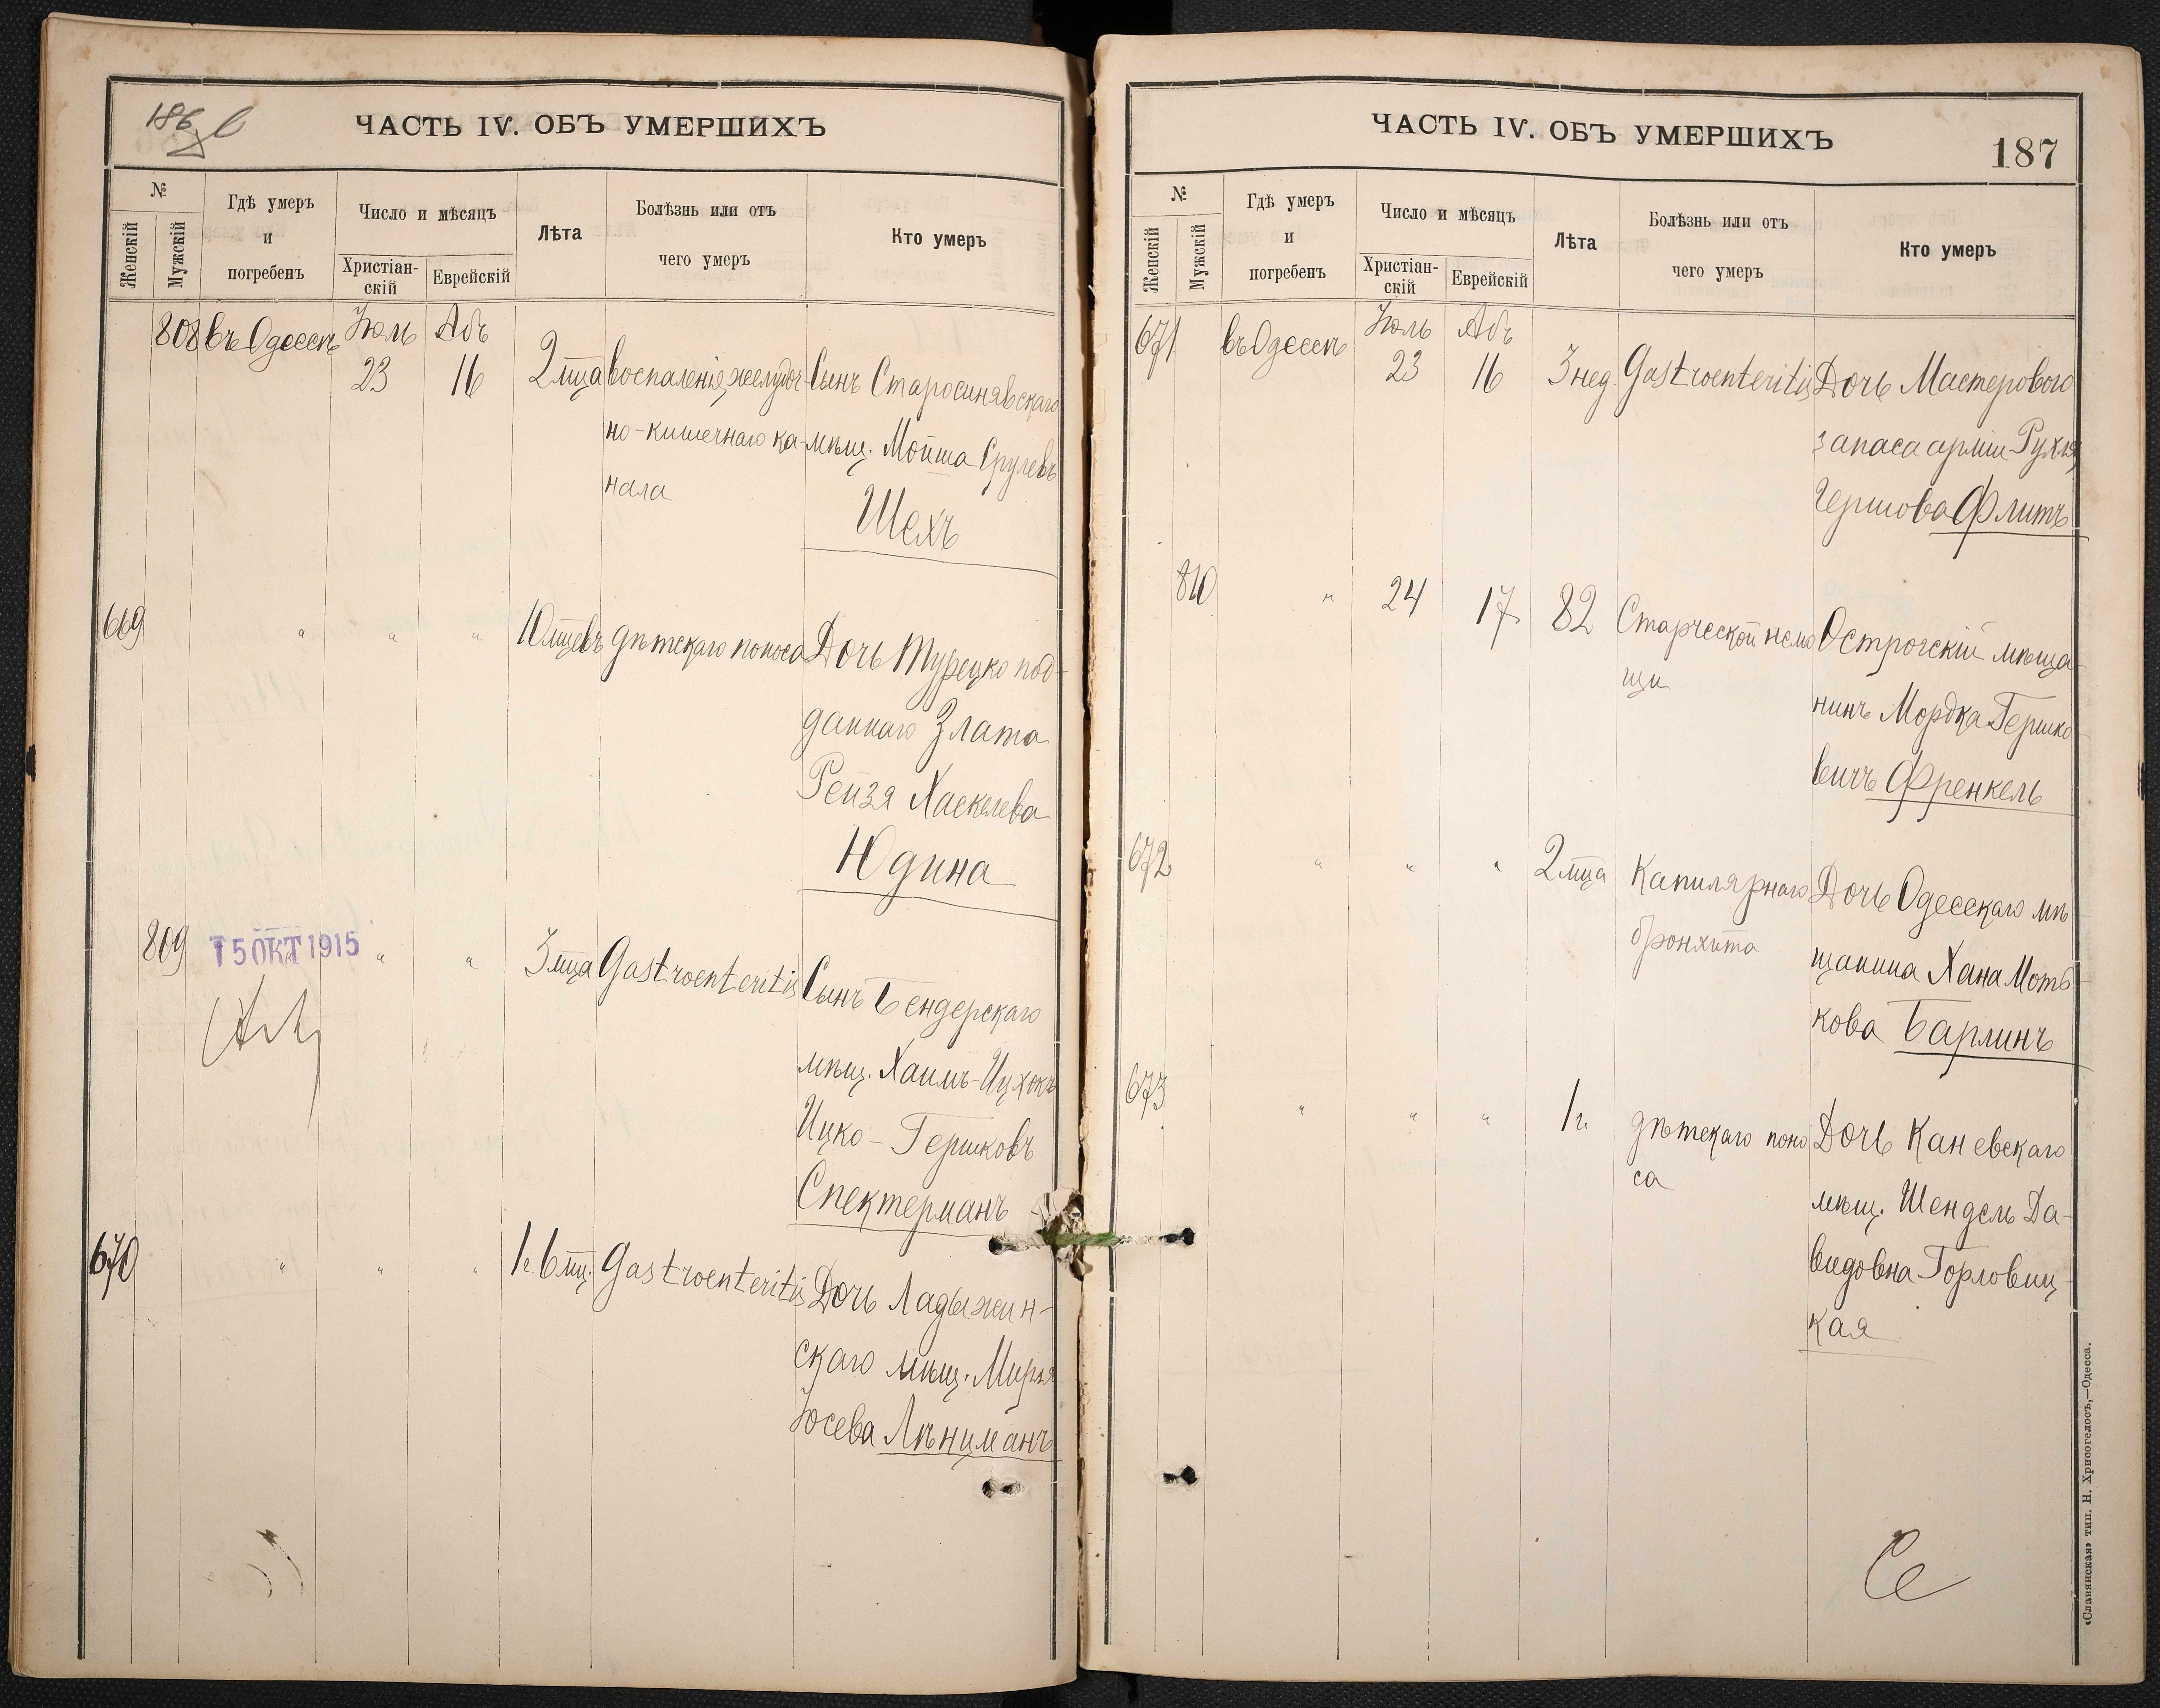 186 в
ЧАСТЬ IV. ОБЪ УМЕРШИХЪ
№
Женскій
Мужскій
Гдѣ умеръ
и
погребенъ
Число и мѣсяцъ
Христіан-
скій
Еврейскій
Лѣта
Болѣзнь или отъ
чего умеръ
Кто умеръ
808 въ Одессѣ Іюль Абъ
23 16 2 мца воспаленія желудоч- Сынъ Старосинявскаго
но-кишечнаго ка- мѣщ. Мойша Срулевъ
нала
Шехъ
669 " " " 10 мцевъ дѣтскаго поноса Дочь Турецко под-
даннаго Злата
Рейзя Хаскелева
Юдина
809 " " " 3 мца Gastroenteritis Сынъ Бендерскаго
15 ОКТ 1915
мѣщ. Хаимъ-Ицхокъ
Ицко-Гершковъ
Спектерманъ
670 " " " 1 г. 6 мц. Gastroenteritis Дочь Ладыжин-
скаго мѣщ. Мирья
Іосева Лѣнцманъ
ЧАСТЬ IV. ОБЪ УМЕРШИХЪ
187
№
Женскій
Мужскій
Гдѣ умеръ
и
погребенъ
Число и мѣсяцъ
Христіан-
скій
Еврейскій
Лѣта
Болѣзнь или отъ
чего умеръ
Кто умеръ
671 въ Одессѣ Іюль Абъ
23 16 3 нед. Gastroenteritis Дочь Мастерового
запаса арміи Рухля
Гершова Флитъ
810 " 24 17 82 Старческой немо Острогскій мѣща-
щи
нинъ Мордка Гершко-
вичъ Френкель
672 " " " 2 мца Капилярнаго Дочь Одесскаго мѣ
бронхита
щанина Хана Моть-
кова Барлинъ
673 " " " 1 г. дѣтскаго поно Дочь Каневскаго
са
мѣщ. Шендель Да-
видовна Горловиц-
кая
«Славянская» тип. Н. Хрисогелосъ,—Одесса.